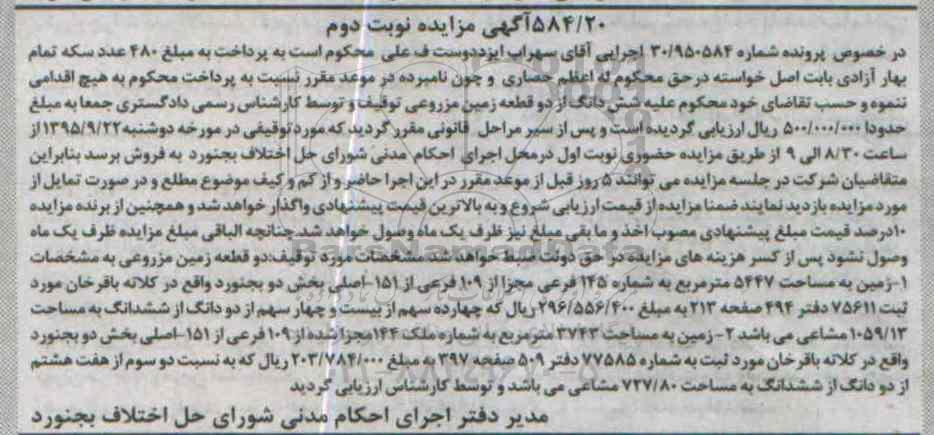 ۵۸۴/۲۰آگهی مزایده نوبت دوم
در خصوص پرونده شماره ۳۰/۹۵۰۵۸۴ اجرایی آقای سهراب ایزددوست ف علی محکوم است به پرداخت به مبلغ ۴۸۰ عدد سکه تمام
بهار آزادی بابت اصل خواسته درحق محکوم له اعظم حصاری و چون نامبرده در موعد مقرر نسبت به پرداخت محکوم به هیچ اقدامی
ننموه و حسب تقاضای خود محکوم علیه شش دانگ از دو قطعه زمین مزروعی توقیف و توسط کارشناس رسمی دادگستری جمعا به مبلغ
حدودا ۵۰۰/۰۰۰/۰۰۰ ریال ارزیابی گردیده است و پس از سیر مراحل قانونی مقرر گردید که مورد توقیفی در مورخه دوشنبه ۱۳۹۵/۹/۲۲ از
ساعت ۸/۳۰ الی ۹ از طریق مزایده حضوری نوبت اول درمحل اجرای احکام مدنی شورای حل اختلاف بجنورد به فروش برسد بنابراین
متقاضیان شرکت در جلسه مزایده می توانند ۵ روز قبل از موعد مقرر در این اجرا حاضر و از کم و کیف موضوع مطلع و در صورت تمایل از
مورد مزایده بازدید نمایند ضمنا مزایده از قیمت ارزیابی شروع و به بالاترین قیمت پیشنهادی واگذار خواهد شد و همچنین از برنده مزایده
۱۰درصد قیمت مبلغ پیشنهادی مصوب اخذ و ما بقی مبلغ نیز ظرف یک ماه وصول خواهد شد.چنانچه الباقی مبلغ مزایده ظرف یک ماه
وصول نشود پس از کسر هزینه های مزایده در حق دولت ضبط خواهد شد مشخصات مورد توقیف:دو قطعه زمین مزروعی به مشخصات
۱-زمین به مساحت ۵۴۴۷ مترمربع به شماره ۱۴۵ فرعی مجزا از ۱۰۹ فرعی از ۱۵۱-اصلی بخش دو بجنورد واقع در کلاته باقرخان مورد
ثبت ۷۵۶۱۱ دفتر ۴۹۴ صفحه ۲۱۳ به مبلغ ۲۹۶/۵۵۶/۴۰۰ ریال که چهارده سهم از بیست و چهار سهم از دو دانگ از ششدانگ به مساحت
۱۰۵۹/۱۳ مشاعی می باشد ۲- زمین به مساحت ۳۷۴۳ مترمربع به شماره ملک ۱۴۴ مجزا شده از ۱۰۹ فرعی از ۱۵۱-اصلی بخش دو بجنورد
واقع در کلاته باقر خان مورد ثبت به شماره ۷۷۵۸۵ دفتر ۵۰۹ صفحه ۳۹۷ به مبلغ ۲۰۳/۷۸۴/۰۰۰ ریال که به نسبت دو سوم از هفت هشتم
از دو دانگ از ششدانگ به مساحت ۷۲۷/۸۰ مشاعی می باشد و توسط کارشناس ارزیابی گردید
مدیر دفتر اجرای احکام مدنی شورای حل اختلاف بجنورد
ParsNamadData